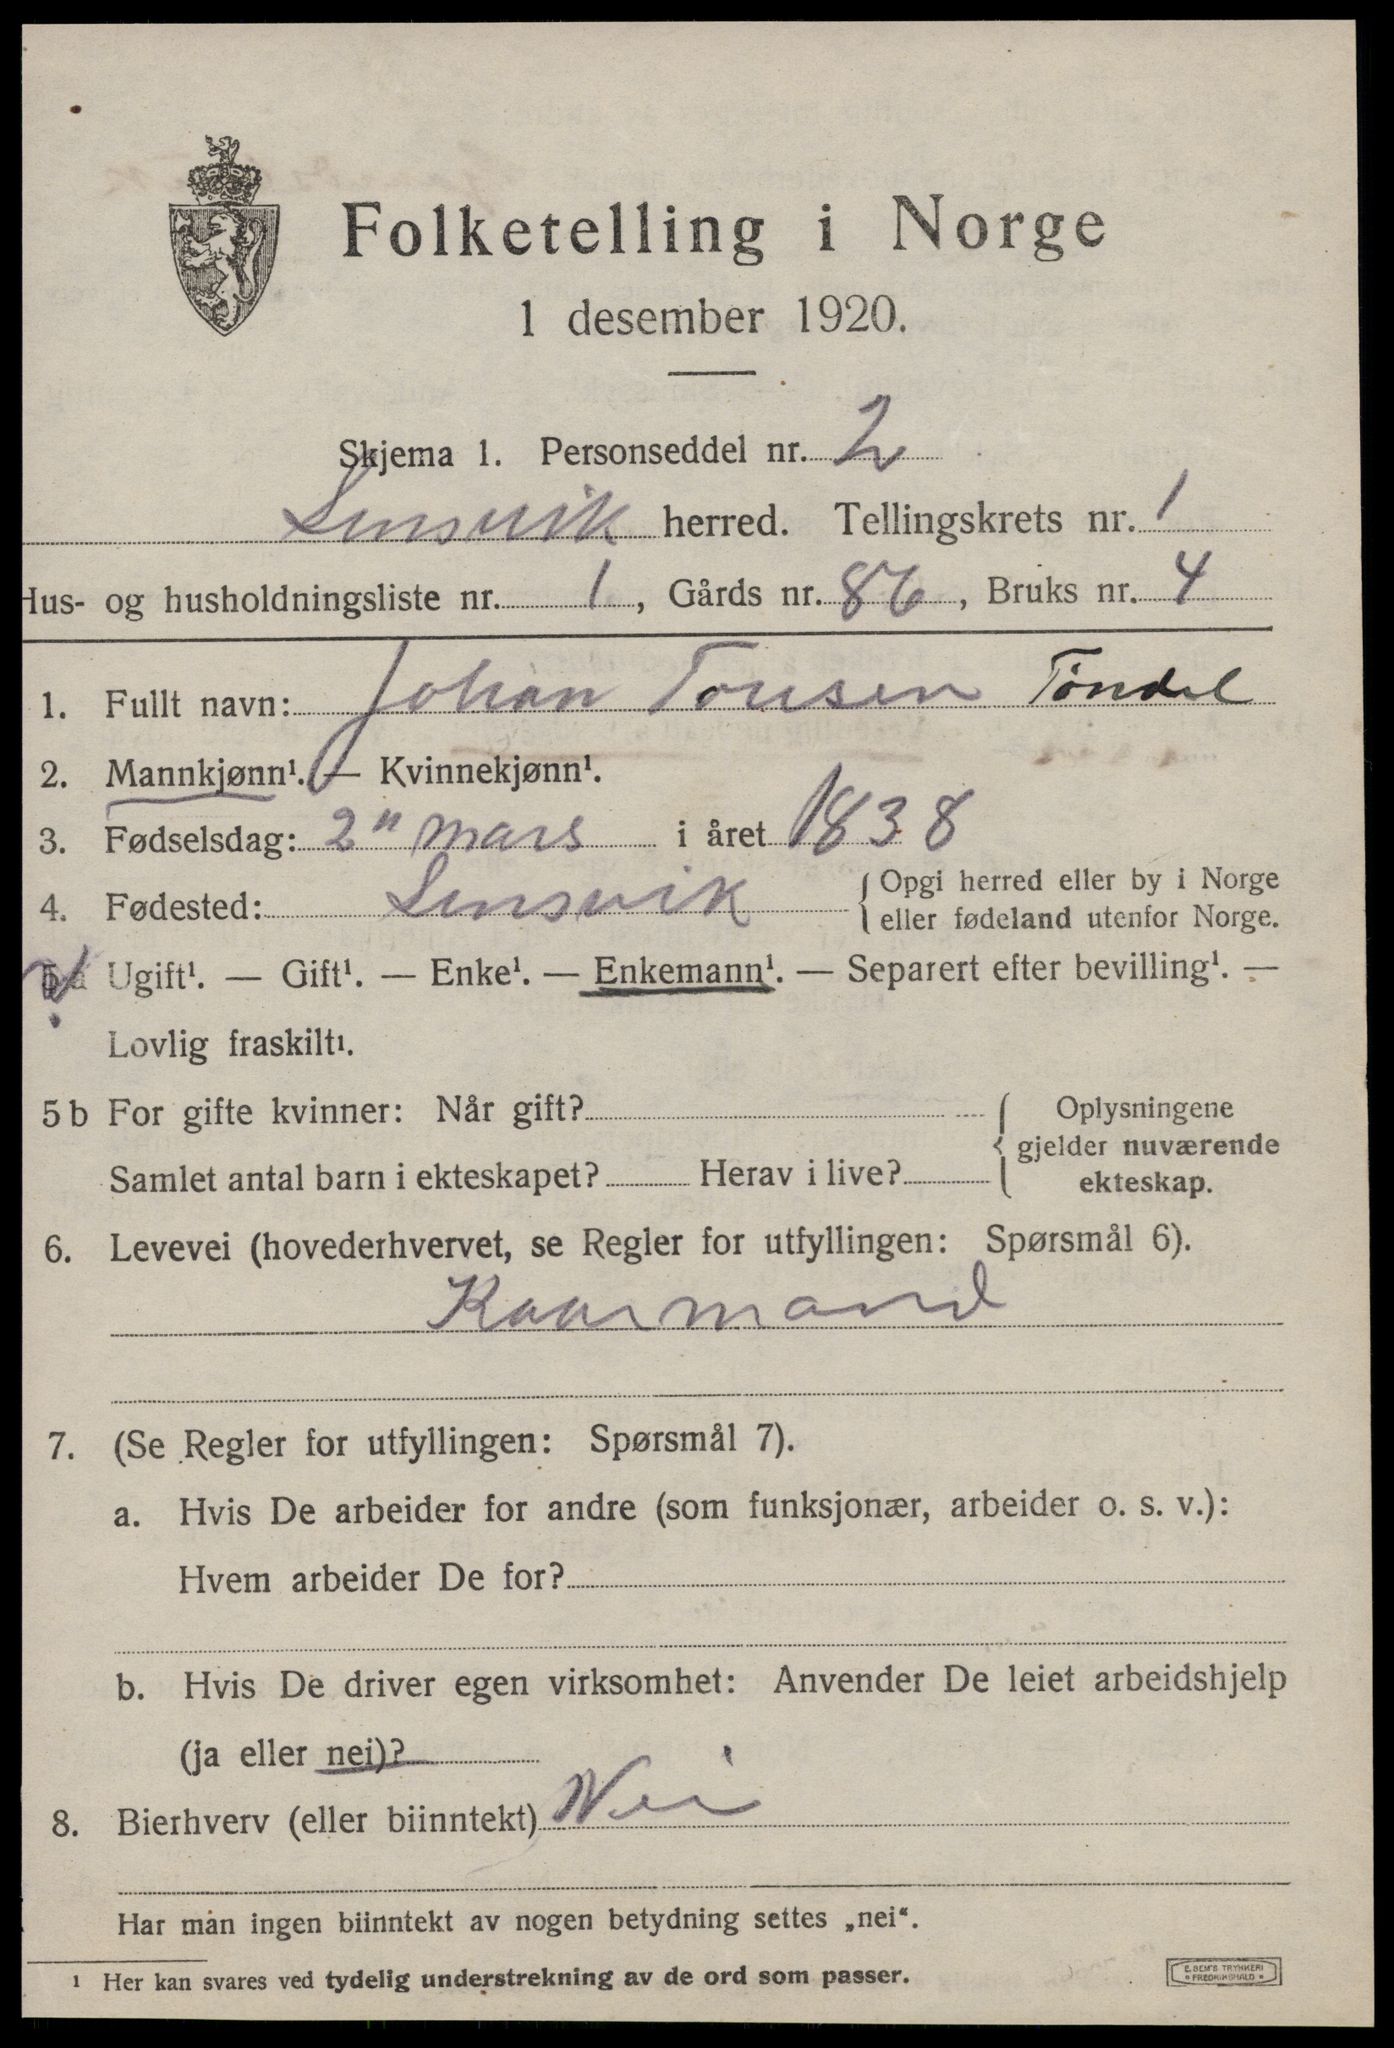 Folketelling i Norge
1 desember 1920.
Skjema 1. Personseddel nr. 2
Lensvik herred. Tellingskrets nr. 1
Hus- og husholdningsliste nr. 1, Gårds nr. 86, Bruks nr. 4
1. Fullt navn: Johan Tousen Töndel
2. Mannkjønn¹. — Kvinnekjønn¹.
3. Fødselsdag: 2" mars i året 1838
4. Fødested: Lensvik { Opgi herred eller by i Norge
eller fødeland utenfor Norge.
5 a Ugift¹. — Gift¹. — Enke¹. — Enkemann¹. — Separert efter bevilling¹. —
Lovlig fraskilt¹.
5 b For gifte kvinner: Når gift? { Oplysningene
gjelder nuværende
Samlet antal barn i ekteskapet? Herav i live? ekteskap.
6. Levevei (hovederhvervet, se Regler for utfyllingen: Spørsmål 6).
Kaarmand
7. (Se Regler for utfyllingen: Spørsmål 7).
a. Hvis De arbeider for andre (som funksjonær, arbeider o. s. v.):
Hvem arbeider De for?
b. Hvis De driver egen virksomhet: Anvender De leiet arbeidshjelp
(ja eller nei)?
8. Bierhverv (eller biinntekt) Nei
Har man ingen biinntekt av nogen betydning settes „nei“.
¹ Her kan svares ved tydelig understrekning av de ord som passer.
E. SEM'S TRYKKERI
FREDRIKSHALD